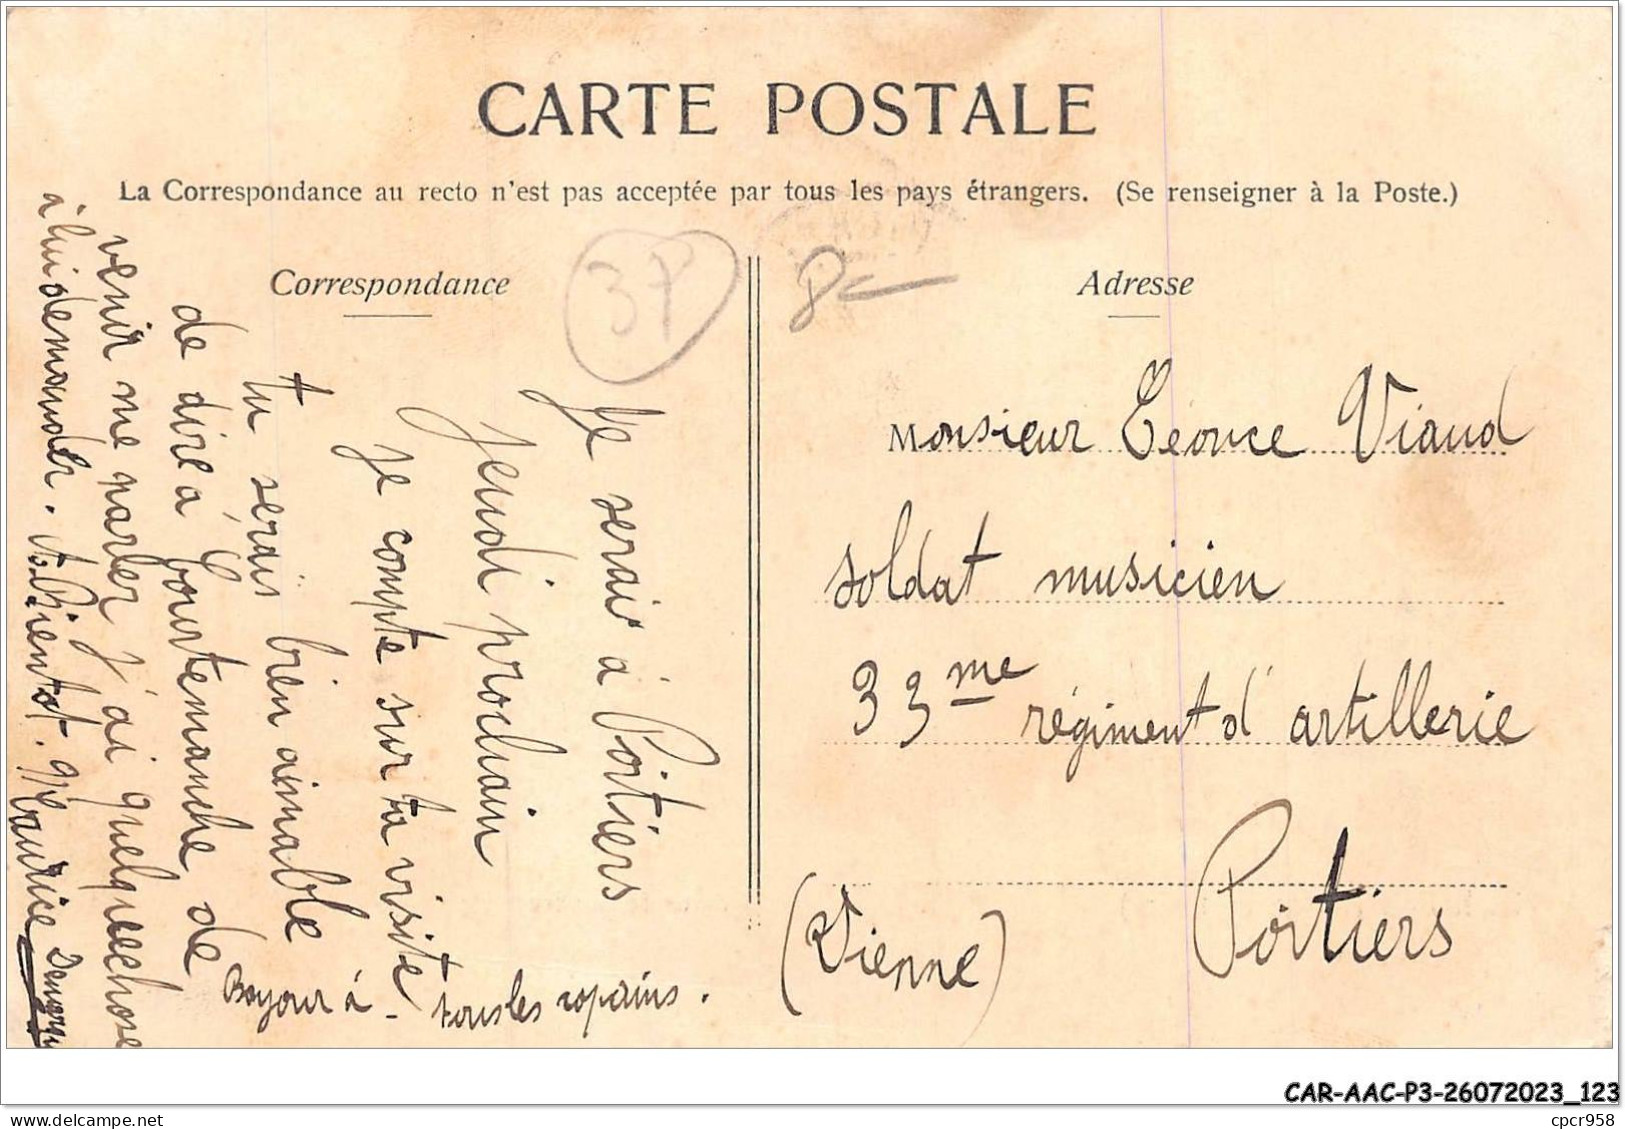 CARTE POSTALE
La Correspondance au recto n'est pas acceptée par tous les pays étrangers. (Se renseigner à la Poste.)
Correspondance
37
Je serai à Poitiers
Jeudi prochain
je compte sur ta visite
tu serais bien aimable
de dire à Courtemanche de
venir me parler j'ai quelquechose
à lui demander. A Bientot. Maurice
Bonjour à tous les copains.
Adresse
Monsieur Léonce Viaud
soldat musicien
33me régiment d'artillerie
Poitiers
(Vienne)
CAR-AAC-P3-26072023_123
cpcr958